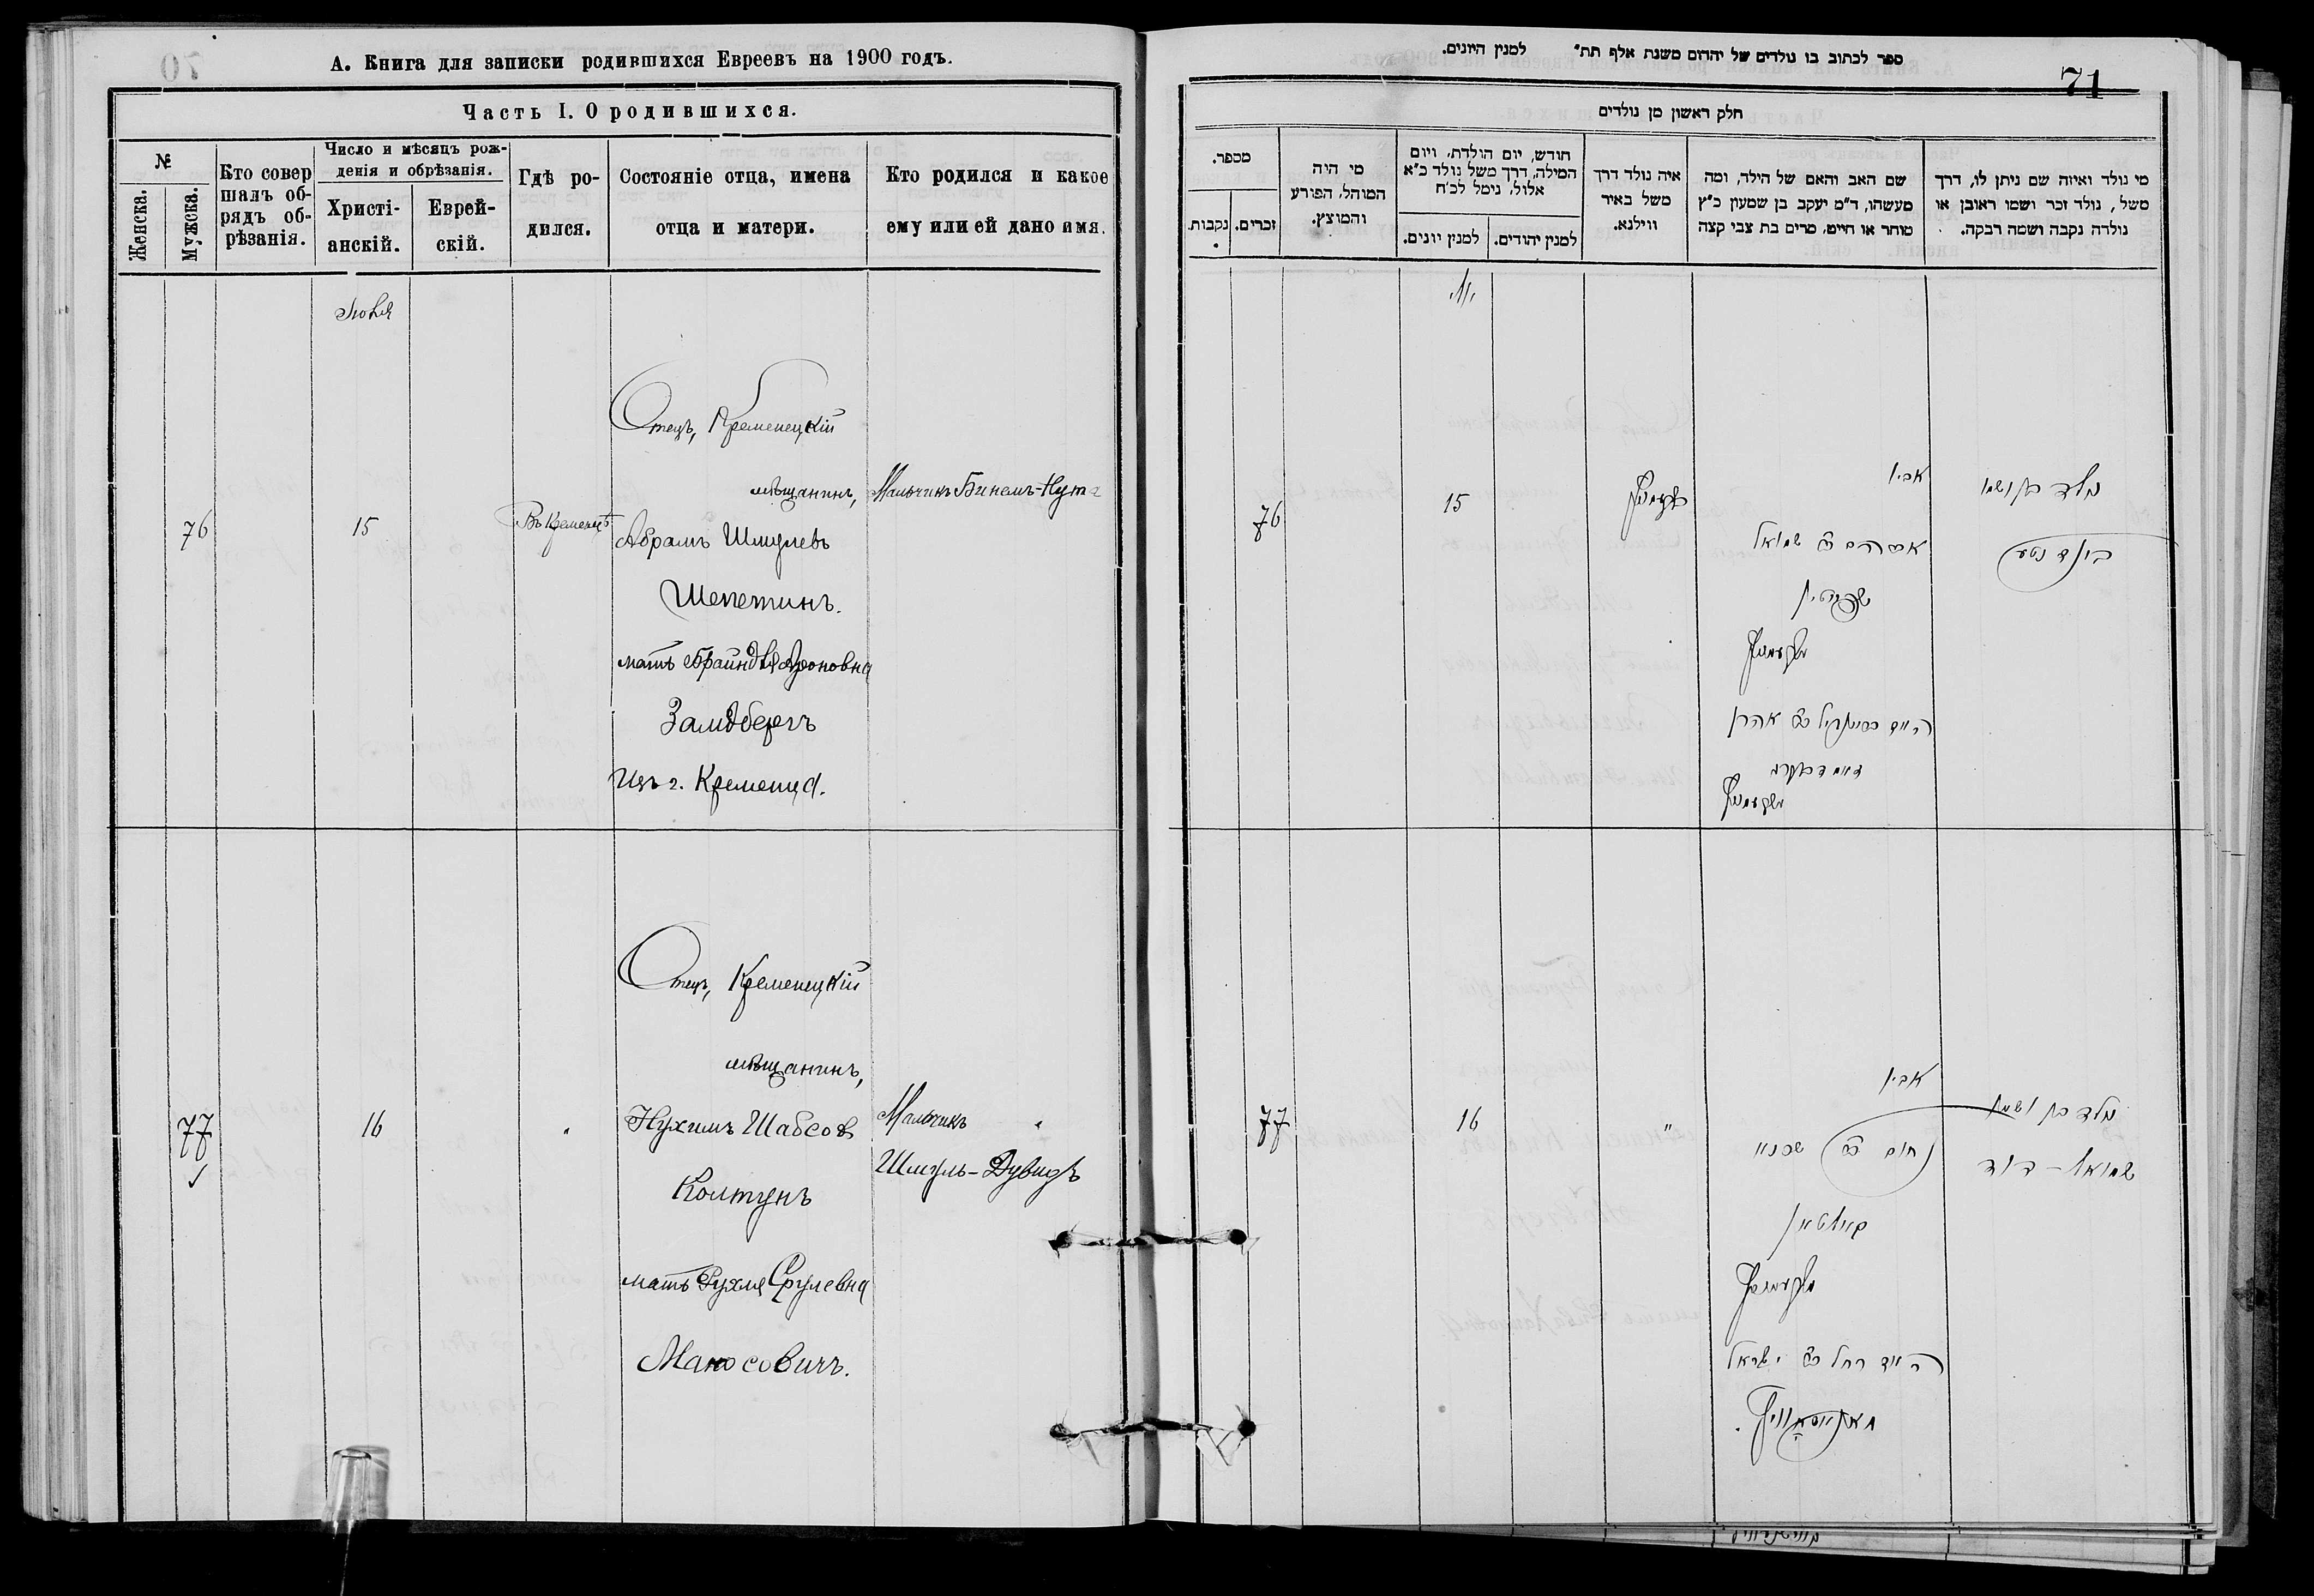 А. Книга для записки родившихся Евреевъ на 1900 годъ.
Часть I. О родившихся.
№
Женска.
Мужска.
Кто совер
шалъ об-
рядъ об-
рѣзанія.
Число и мѣсяцъ рож-
денія и обрѣзанія.
Христі-
анскій.
Еврей-
скій.
Гдѣ ро-
дился.
Состояніе отца, имена
отца и матери.
Кто родился и какое
ему или ей дано имя.
Отецъ, Кременецкій
мѣщанинъ,
76
15
Въ Кременцѣ
Абрамъ Шмулевъ
Шепетинъ.
мать Брайндля Ароновна
Замдбергъ
Изъ г. Кременца.
Мальчикъ Бинемъ-Нута
Отецъ, Кременецкій
мѣщанинъ,
77
16
"
Нухимъ Шабсов
Колтунъ
мать Рухля Срулевна
Маносовичъ.
Мальчикъ
Шмуль-Дувидъ
ספר לכתוב בו נולדים של יהדום משנת אלף תת״ למנין היונים.
71
חלק ראשון מן נולדים
מספר.
נקבות.
זכרים.
מי היה
המוהל, הפורע
והמוצץ.
חודש, יום הולדת, ויום
המילה, דרך משל נולד כ״א
אלול, נימל לכ״ח
למנין יונים.
למנין יהודים.
איה נולד דרך
משל באיר
ווילנא.
שם האב והאם של הילד, ומה
מעשהו, ד״מ יעקב בן שמעון כ״ץ
סוחר או חייט, מרים בת צבי קצה
מי נולד ואיזה שם ניתן לו, דרך
משל, נולד זכר ושמו ראובן או
נולדה נקבה ושמה רבקה.
76
15
אביו
אברהם ב״ר שמואל
שעפעטין
נולד בן ושמו
בינם נטע
77
16
"
אביו
נחום ב״ר שבתי
קאלטאן
האם רחל ב״ר ישראל
נולד בן ושמו
שמואל - דוד